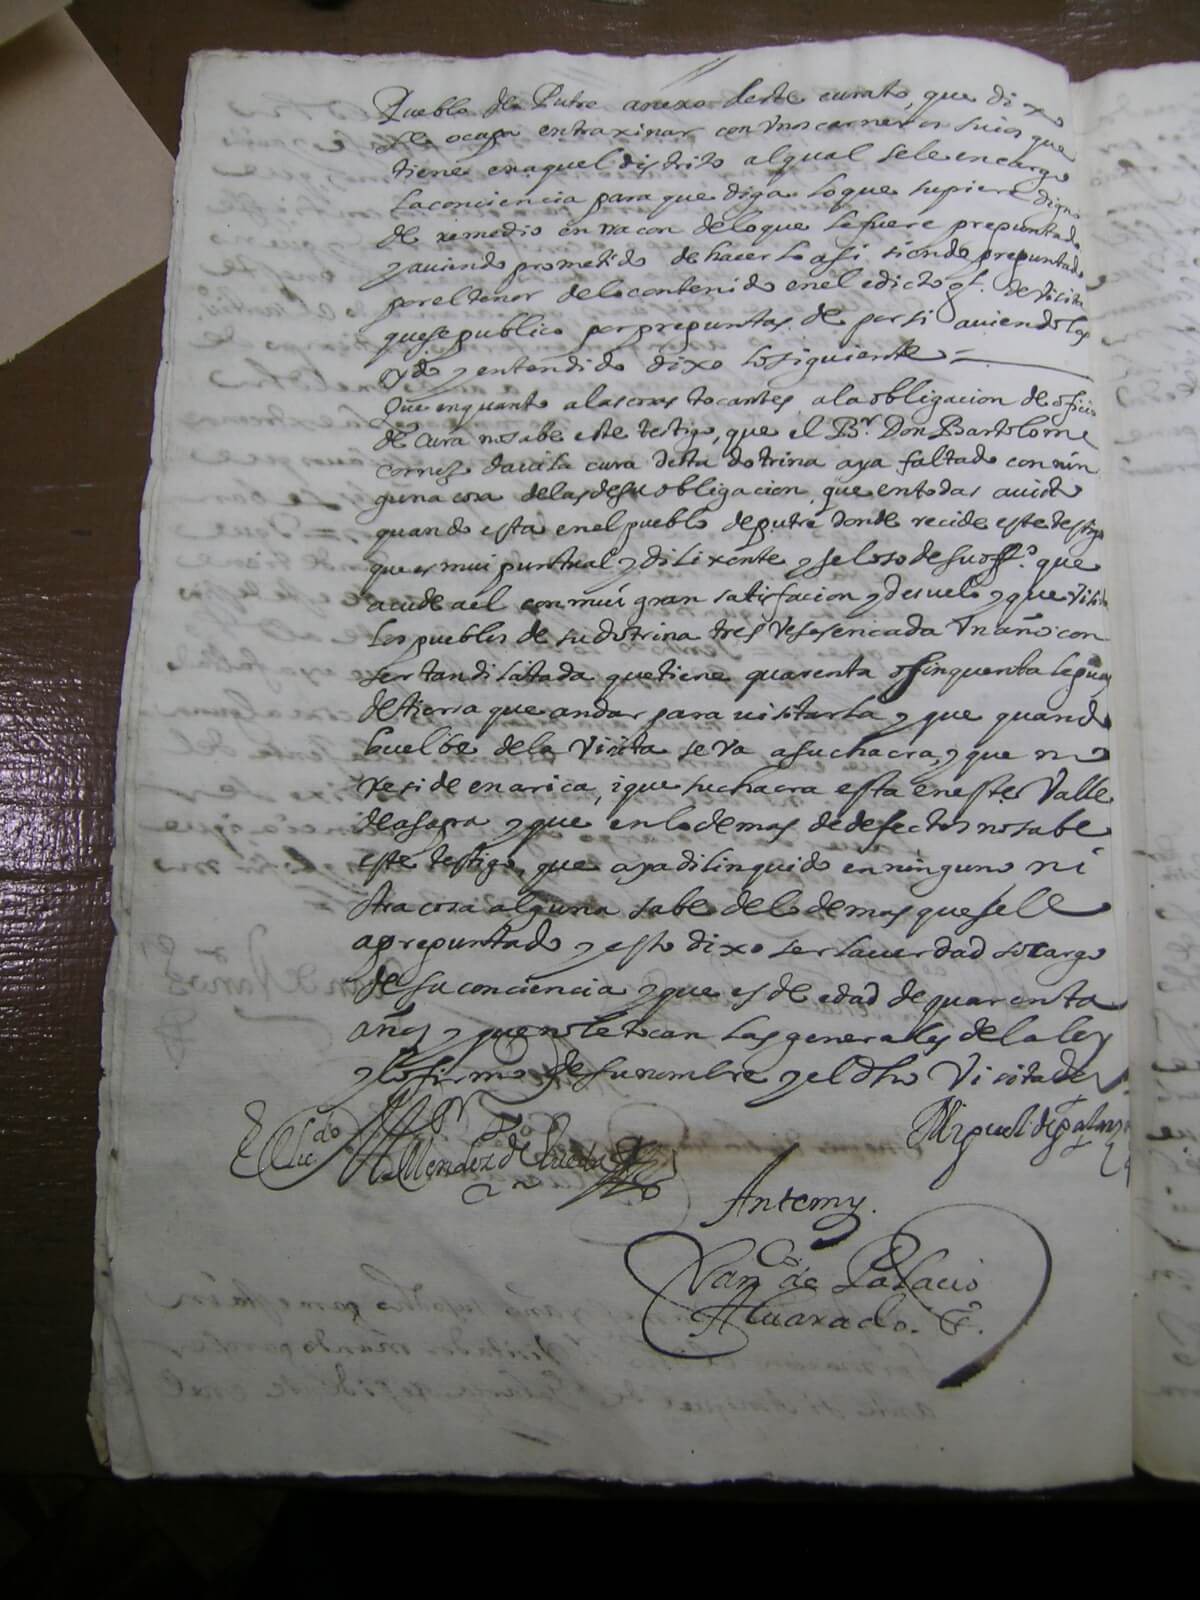 Pueblo de Putre anexo deste curato, que dixo
se ocupa entraxinar con Unos carneros suios que
tiene en aquel distrito al qual sele encargo
la conciencia para que diga lo que supiere digno
de remedio en racon delo que le fuere prepuntado
y auiendo prometido de hacerlo asi siendo prepuntado
por el tenor delo contenido en el edicto gl. de Visita
que se publico por prepuntas de por si auiendolas
oydo y entendido dixo lo siguiente =
Que en quanto a las cosas tocantes a la obligacion de oficio
de cura no sabe este testigo, que el Br. Don Bartolome
Cornejo dauila cura desta dotrina aya faltado con nin
guna cosa delas de su obligacion que en todas a uisto
quando esta en el pueblo de putre donde recide este testigo
que es mui puntual y dilixente y seloso de su offo. que
acude a el con mui gran satisfacion y desuelo y que Visita
los pueblos de su dotrina tres Veses en cada Un año con
ser tan dilatada que tiene quarenta o sinquenta leguas
de tierra que andar para uisitarla y que quando
buelbe dela Visita se Va a su chacra, y que no
reside en arica, i que su chacra esta en este Valle
de asapa y que en lo demas de defectos no sabe
este testigo, que aya dilinquido en ninguno ni
otra cosa alguna sabe delo demas que se le
a prepuntado y esto dixo ser la uerdad so cargo
de su conciencia y que es de edad de quarenta
años y que no le tocan las generales de la ley
y lo firmo de su nombre y el dho Visitador
Licdo Mendez de Rueda
Miguel de
Ante my
Palacio
Aluarado.